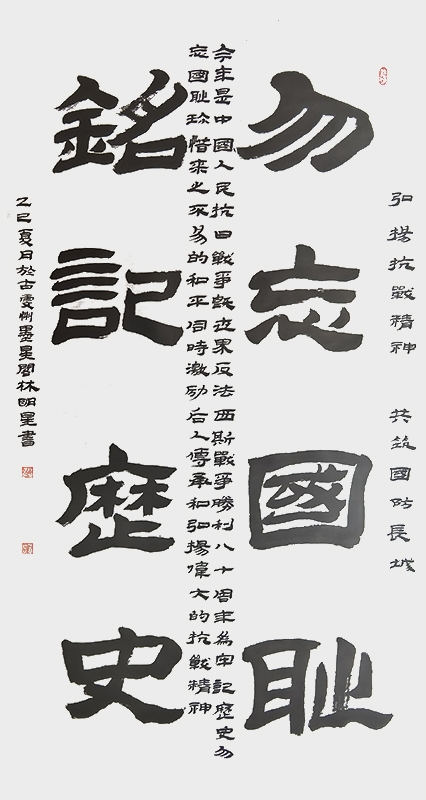 弘揚抗戰精神　共筑國防長城
勿忘國耻
今年是中國人民抗日戰爭暨世界反法西斯戰爭勝利八十周年為牢記歷史勿
忘國耻珍惜来之不易的和平同時激励后人傳承和弘揚偉大的抗戰精神
銘記歷史
乙巳夏月於古雯州墨星閣林明星書